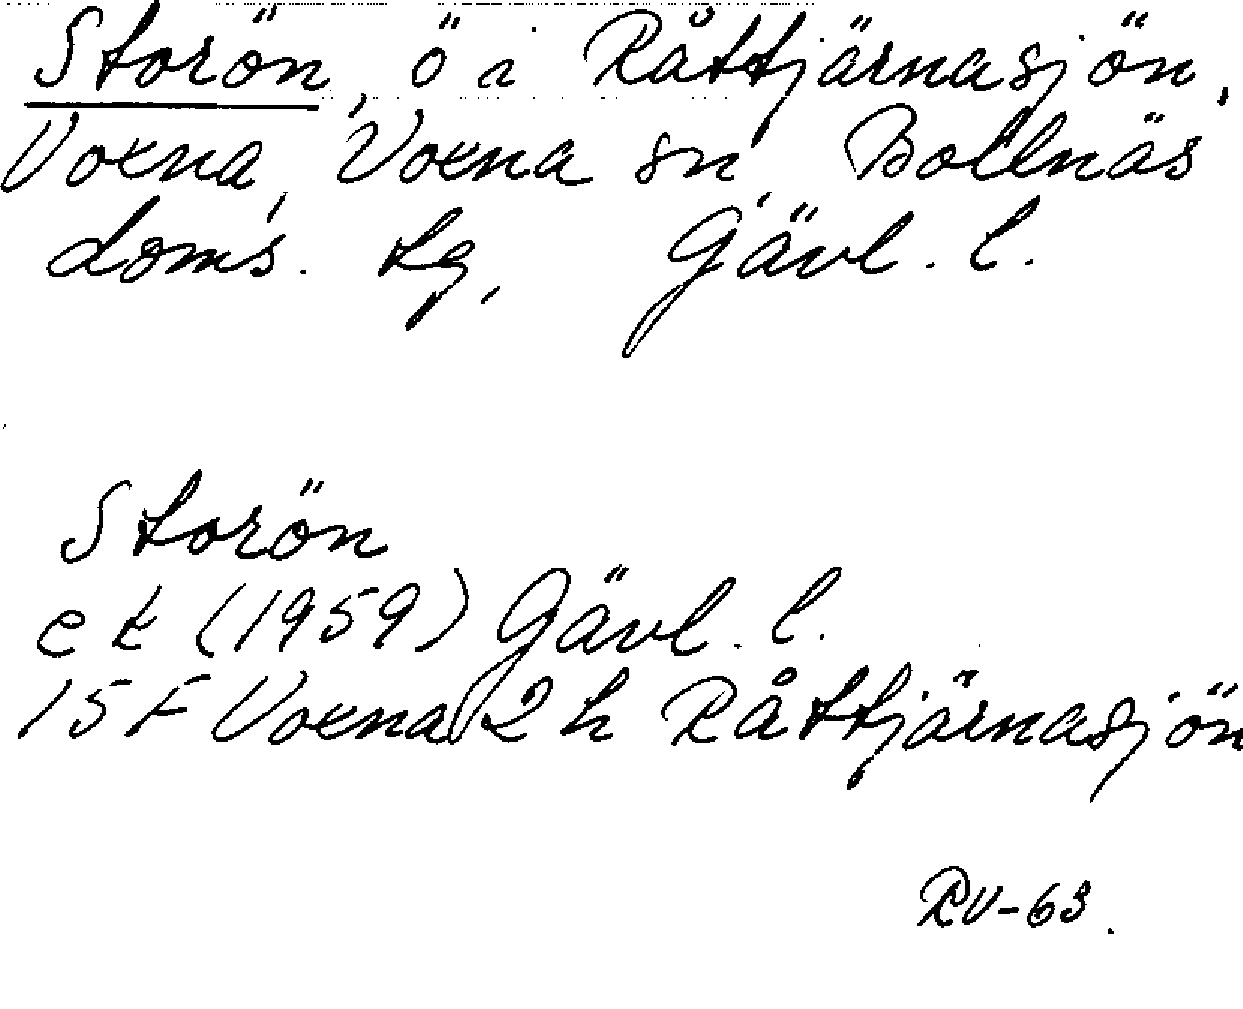 Storön, ö i Råttjärnasjön,
Voxna, Voxna sn, Bollnäs
doms. tg, Gävl. l.
Storön
ek (1959) Gävl. l.
15 F Voxna 2 h Råttjärnasjön
RV-63.